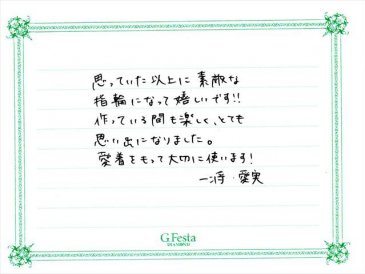 思っていた以上に素敵な
指輪になって嬉しいです!!
作っている間も楽しく、とても
思い出になりました。
愛着をもって大切に使います!
一将・愛実
G.Festa
DIAMOND